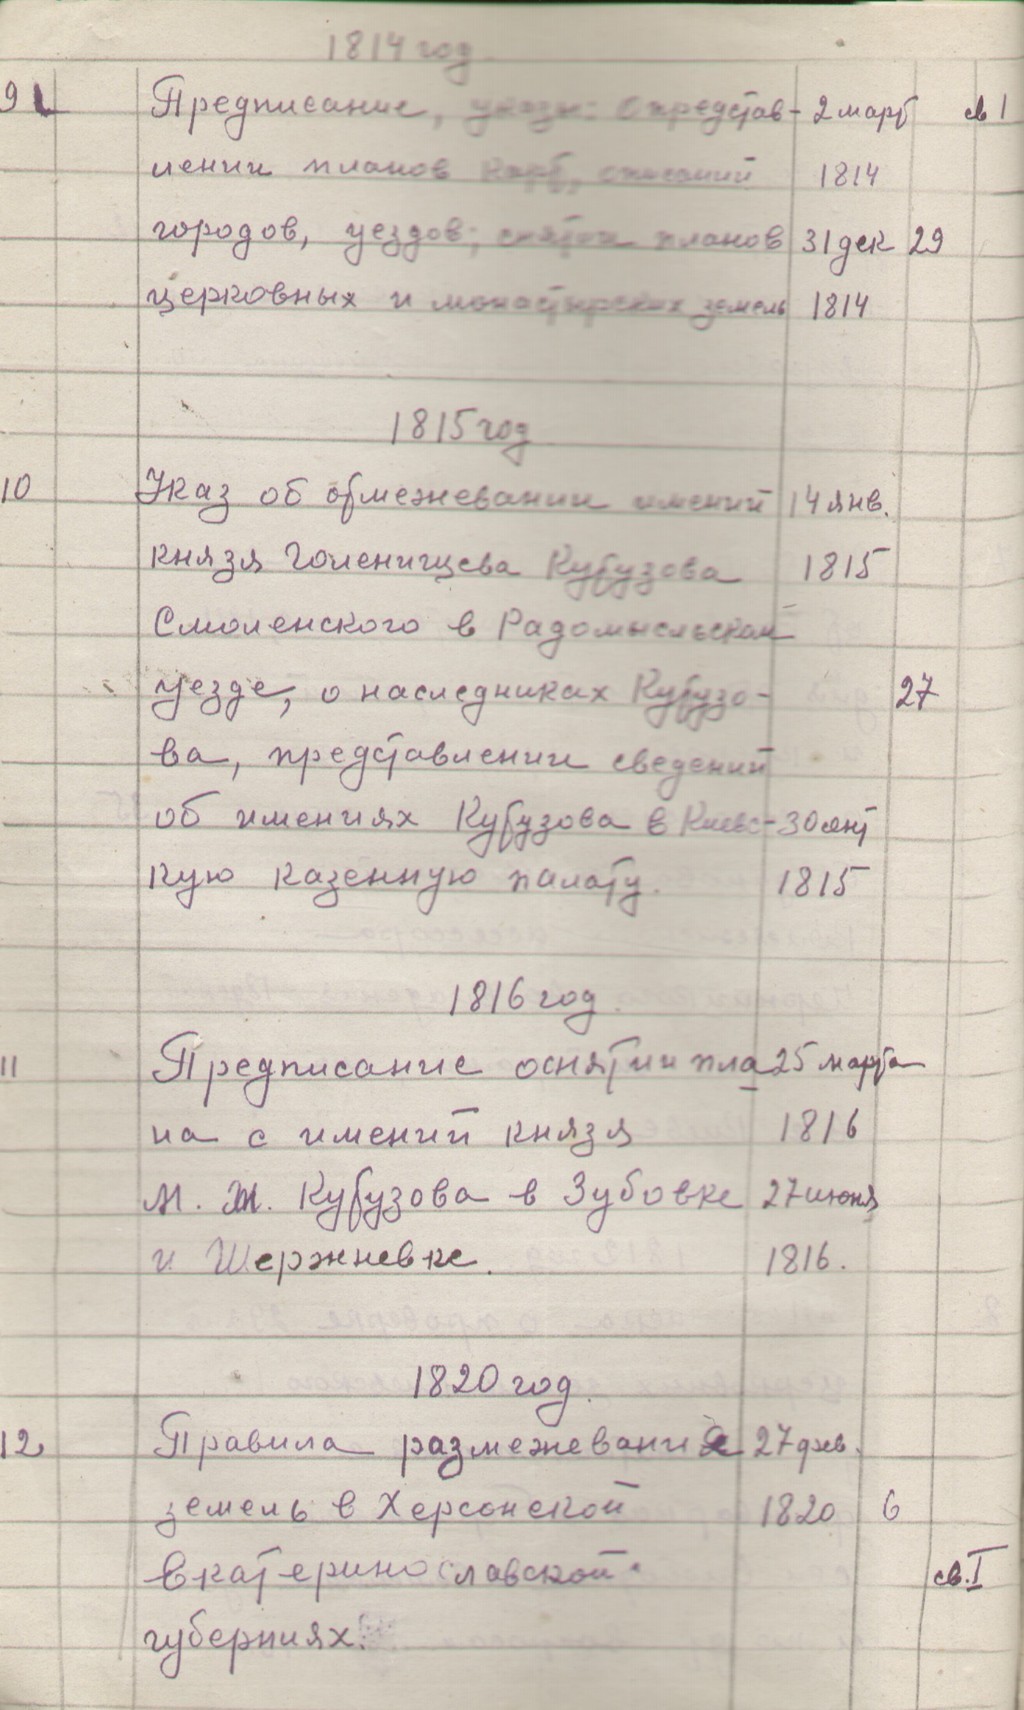 1814 год.
9 Предписание, указы: о представ- 2 март св 1
лении планов карт, описаний 1814
городов, уездов; снятии планов 31 дек 29
церковных и монастырских земель 1814
1815 год
10 Указ об обмежевании имений 14 янв.
князя Голенищева Кутузова 1815
Смоленского в Радомысльском
уезде, о наследниках Кутузо- 27
ва, представлении сведений
об имениях Кутузова в Киевс- 30 окт
кую казенную палату. 1815
1816 год.
11 Предписание о снятии пла 25 марта
на с имений князя 1816
М. И. Кутузова в Зубовке 27 июня
и Шержневке. 1816.
1820 год.
12 Правила размежевания 27 фев.
земель в Херсонской 1820 6
Екатеринославской св. I
губерниях.